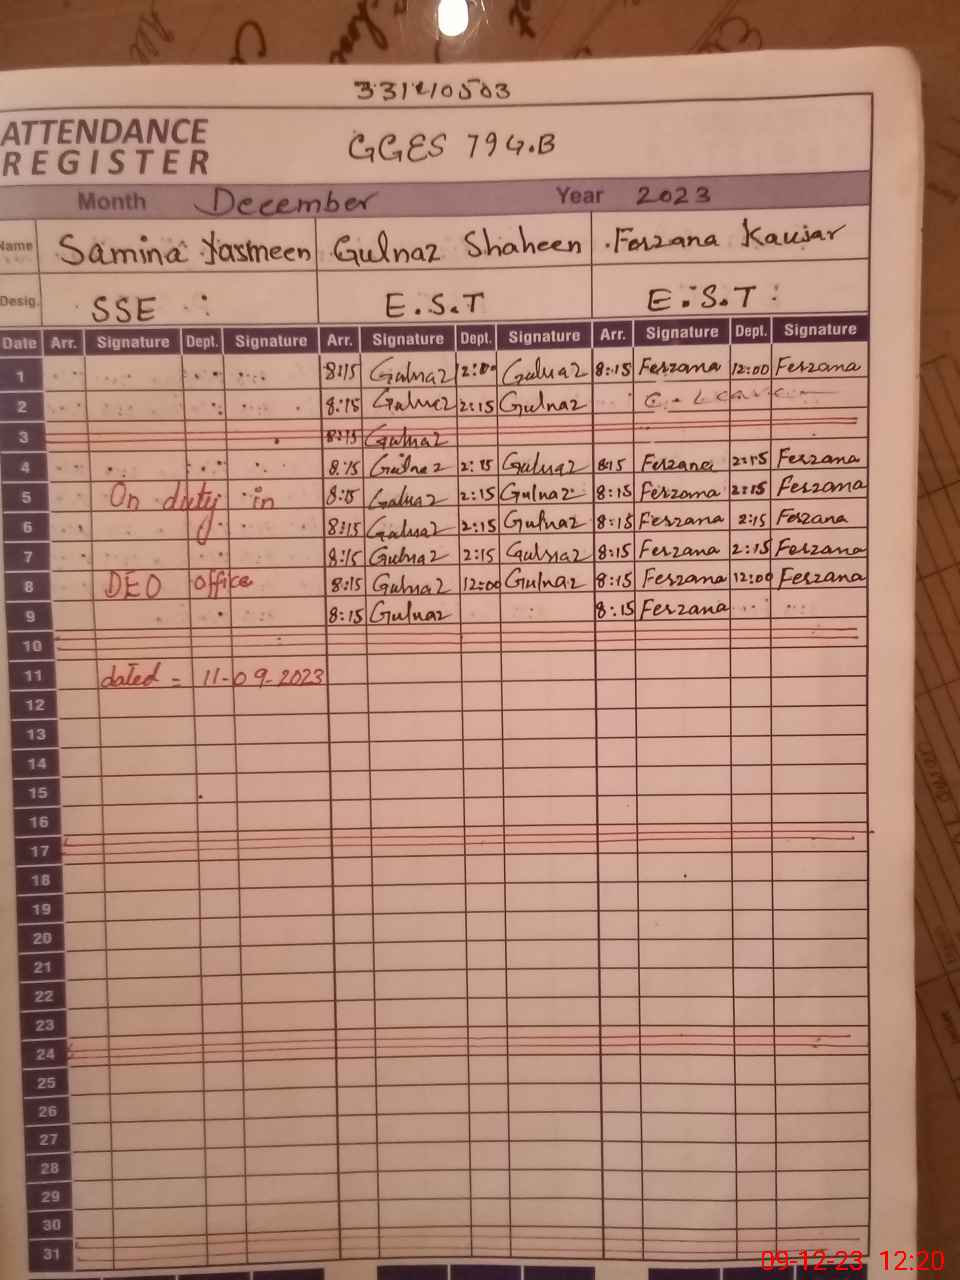 33140503
ATTENDANCE
REGISTER
GGES 79 G.B
Month December Year 2023
Name Samina Yasmeen Gulnaz Shaheen Ferzana Kausar
Desig. SSE E.S.T E.S.T
Date Arr. Signature Dept. Signature Arr. Signature Dept. Signature Arr. Signature Dept. Signature
1 8:15 Gulnaz 12:00 Gulnaz 8:15 Ferzana 12:00 Ferzana
2 8:15 Gulnaz 2:15 Gulnaz C-Leave
3 8:15 Gulnaz
4 8:15 Gulnaz 2:15 Gulnaz 8:15 Ferzana 2:15 Ferzana
5 On duty in 8:15 Gulnaz 2:15 Gulnaz 8:15 Ferzana 2:15 Ferzana
6 8:15 Gulnaz 2:15 Gulnaz 8:15 Ferzana 2:15 Ferzana
7 8:15 Gulnaz 2:15 Gulnaz 8:15 Ferzana 2:15 Ferzana
8 DEO office 8:15 Gulnaz 12:00 Gulnaz 8:15 Ferzana 12:00 Ferzana
9 8:15 Gulnaz 8:15 Ferzana
10
11 dated = 11-09-2023
12
13
14
15
16
17
18
19
20
21
22
23
24
25
26
27
28
29
30
31
09-12-23 12:20